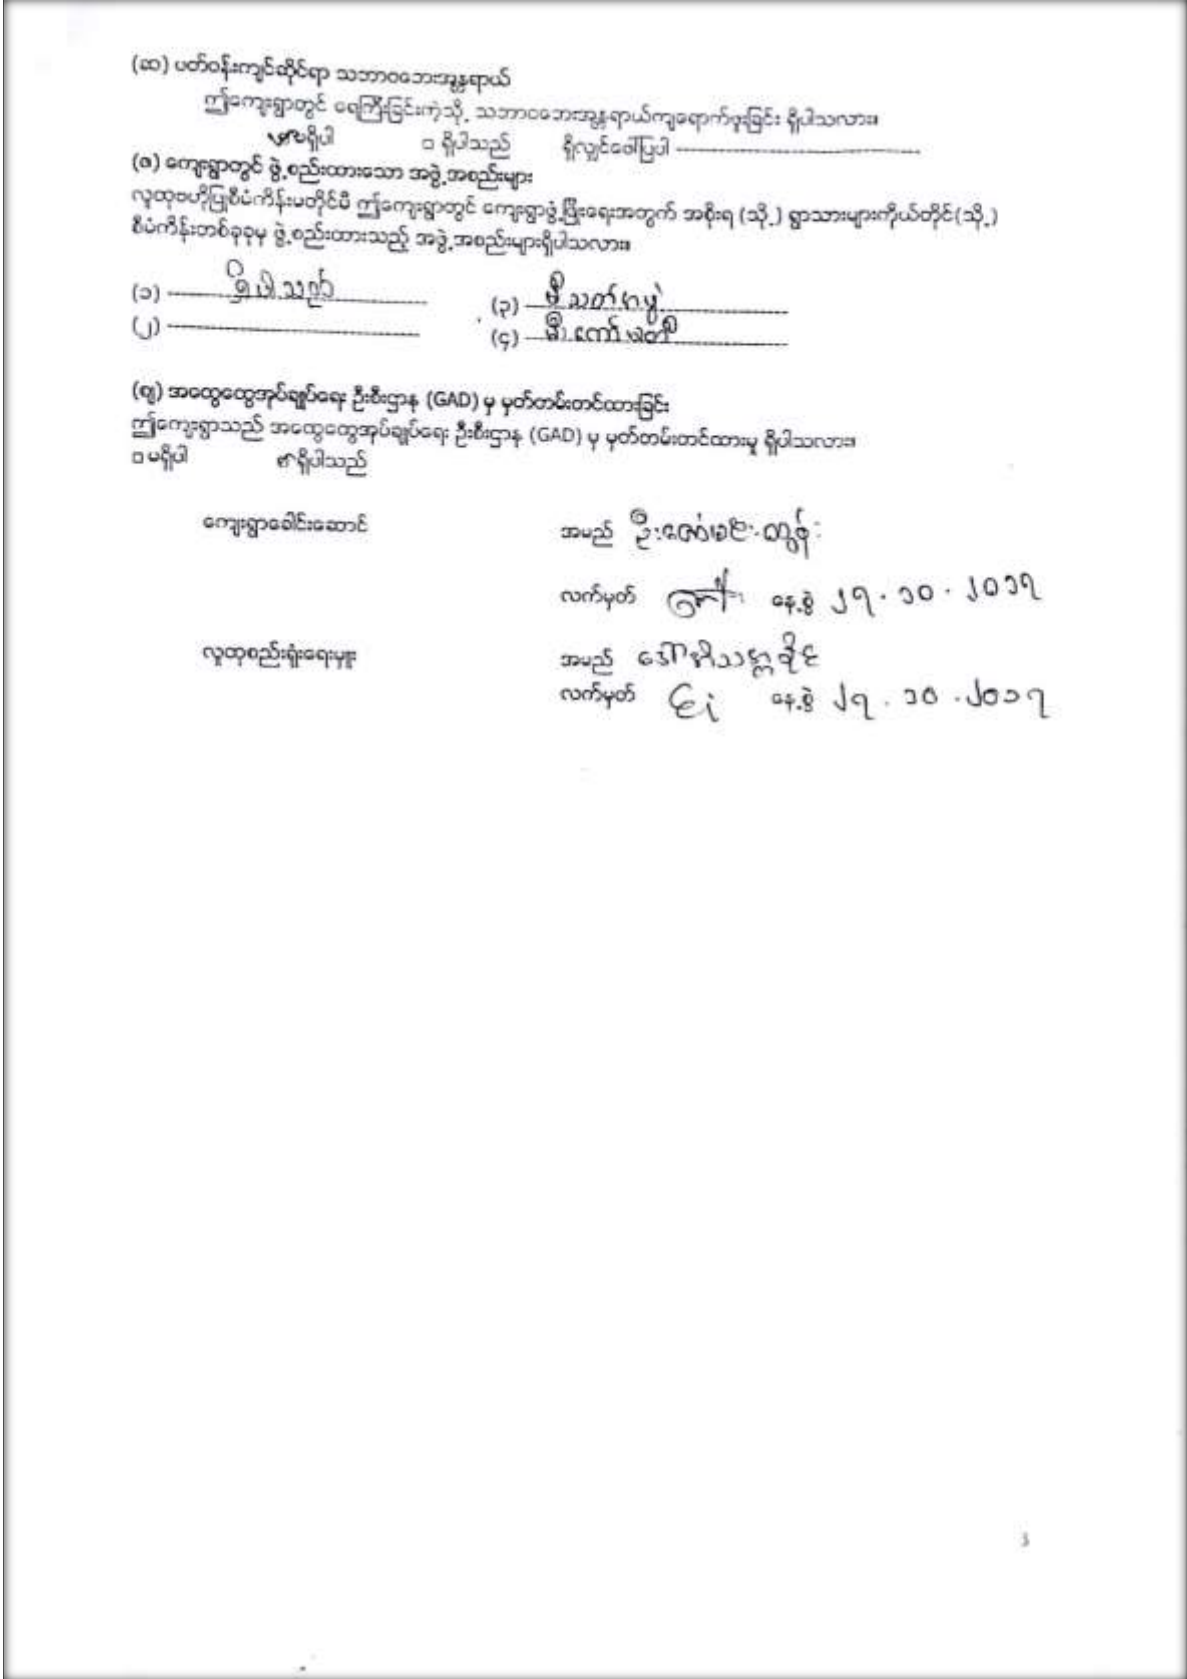 (ဆ) ပတ်ဝန်းကျင်ဆိုင်ရာ သဘာဝဘေးအန္တရာယ်
ဤကျေးရွာတွင် ရေကြီးခြင်းကဲ့သို့ သဘာဝဘေးအန္တရာယ်ကျရောက်ဖူးခြင်း ရှိပါသလား။
မရှိပါ □ ရှိပါသည် ရှိလျှင်ဖေါ်ပြပါ
(ဇ) ကျေးရွာတွင် ဖွဲ့စည်းထားသော အဖွဲ့အစည်းများ
လူထုဗဟိုပြုစီမံကိန်းမတိုင်မီ ဤကျေးရွာတွင် ကျေးရွာဖွံ့ဖြိုးရေးအတွက် အစိုးရ (သို့) ရွာသားများကိုယ်တိုင်(သို့)
စီမံကိန်းတစ်ခုခုမှ ဖွဲ့စည်းထားသည့် အဖွဲ့အစည်းများရှိပါသလား။
(၁) ရှိပါသည် (၃) မီးသတ်
(၂) (၄) ကော်မတီ
(ဈ) အထွေထွေအုပ်ချုပ်ရေး ဦးစီးဌာန (GAD) မှ မှတ်တမ်းတင်ထားခြင်း
ဤကျေးရွာသည် အထွေထွေအုပ်ချုပ်ရေး ဦးစီးဌာန (GAD) မှ မှတ်တမ်းတင်ထားမှု ရှိပါသလား။
□ မရှိပါ ရှိပါသည်
ကျေးရွာခေါင်းဆောင် အမည် ဦးဇော်မင်းထွန်း
လက်မှတ် နေ့စွဲ ၂၇.၁၀.၂၀၁၇
လူထုစည်းရုံးရေးမှူး အမည် ဒေါ်အိသန္တာခိုင်
လက်မှတ် Ei နေ့စွဲ ၂၇.၁၀.၂၀၁၇
3